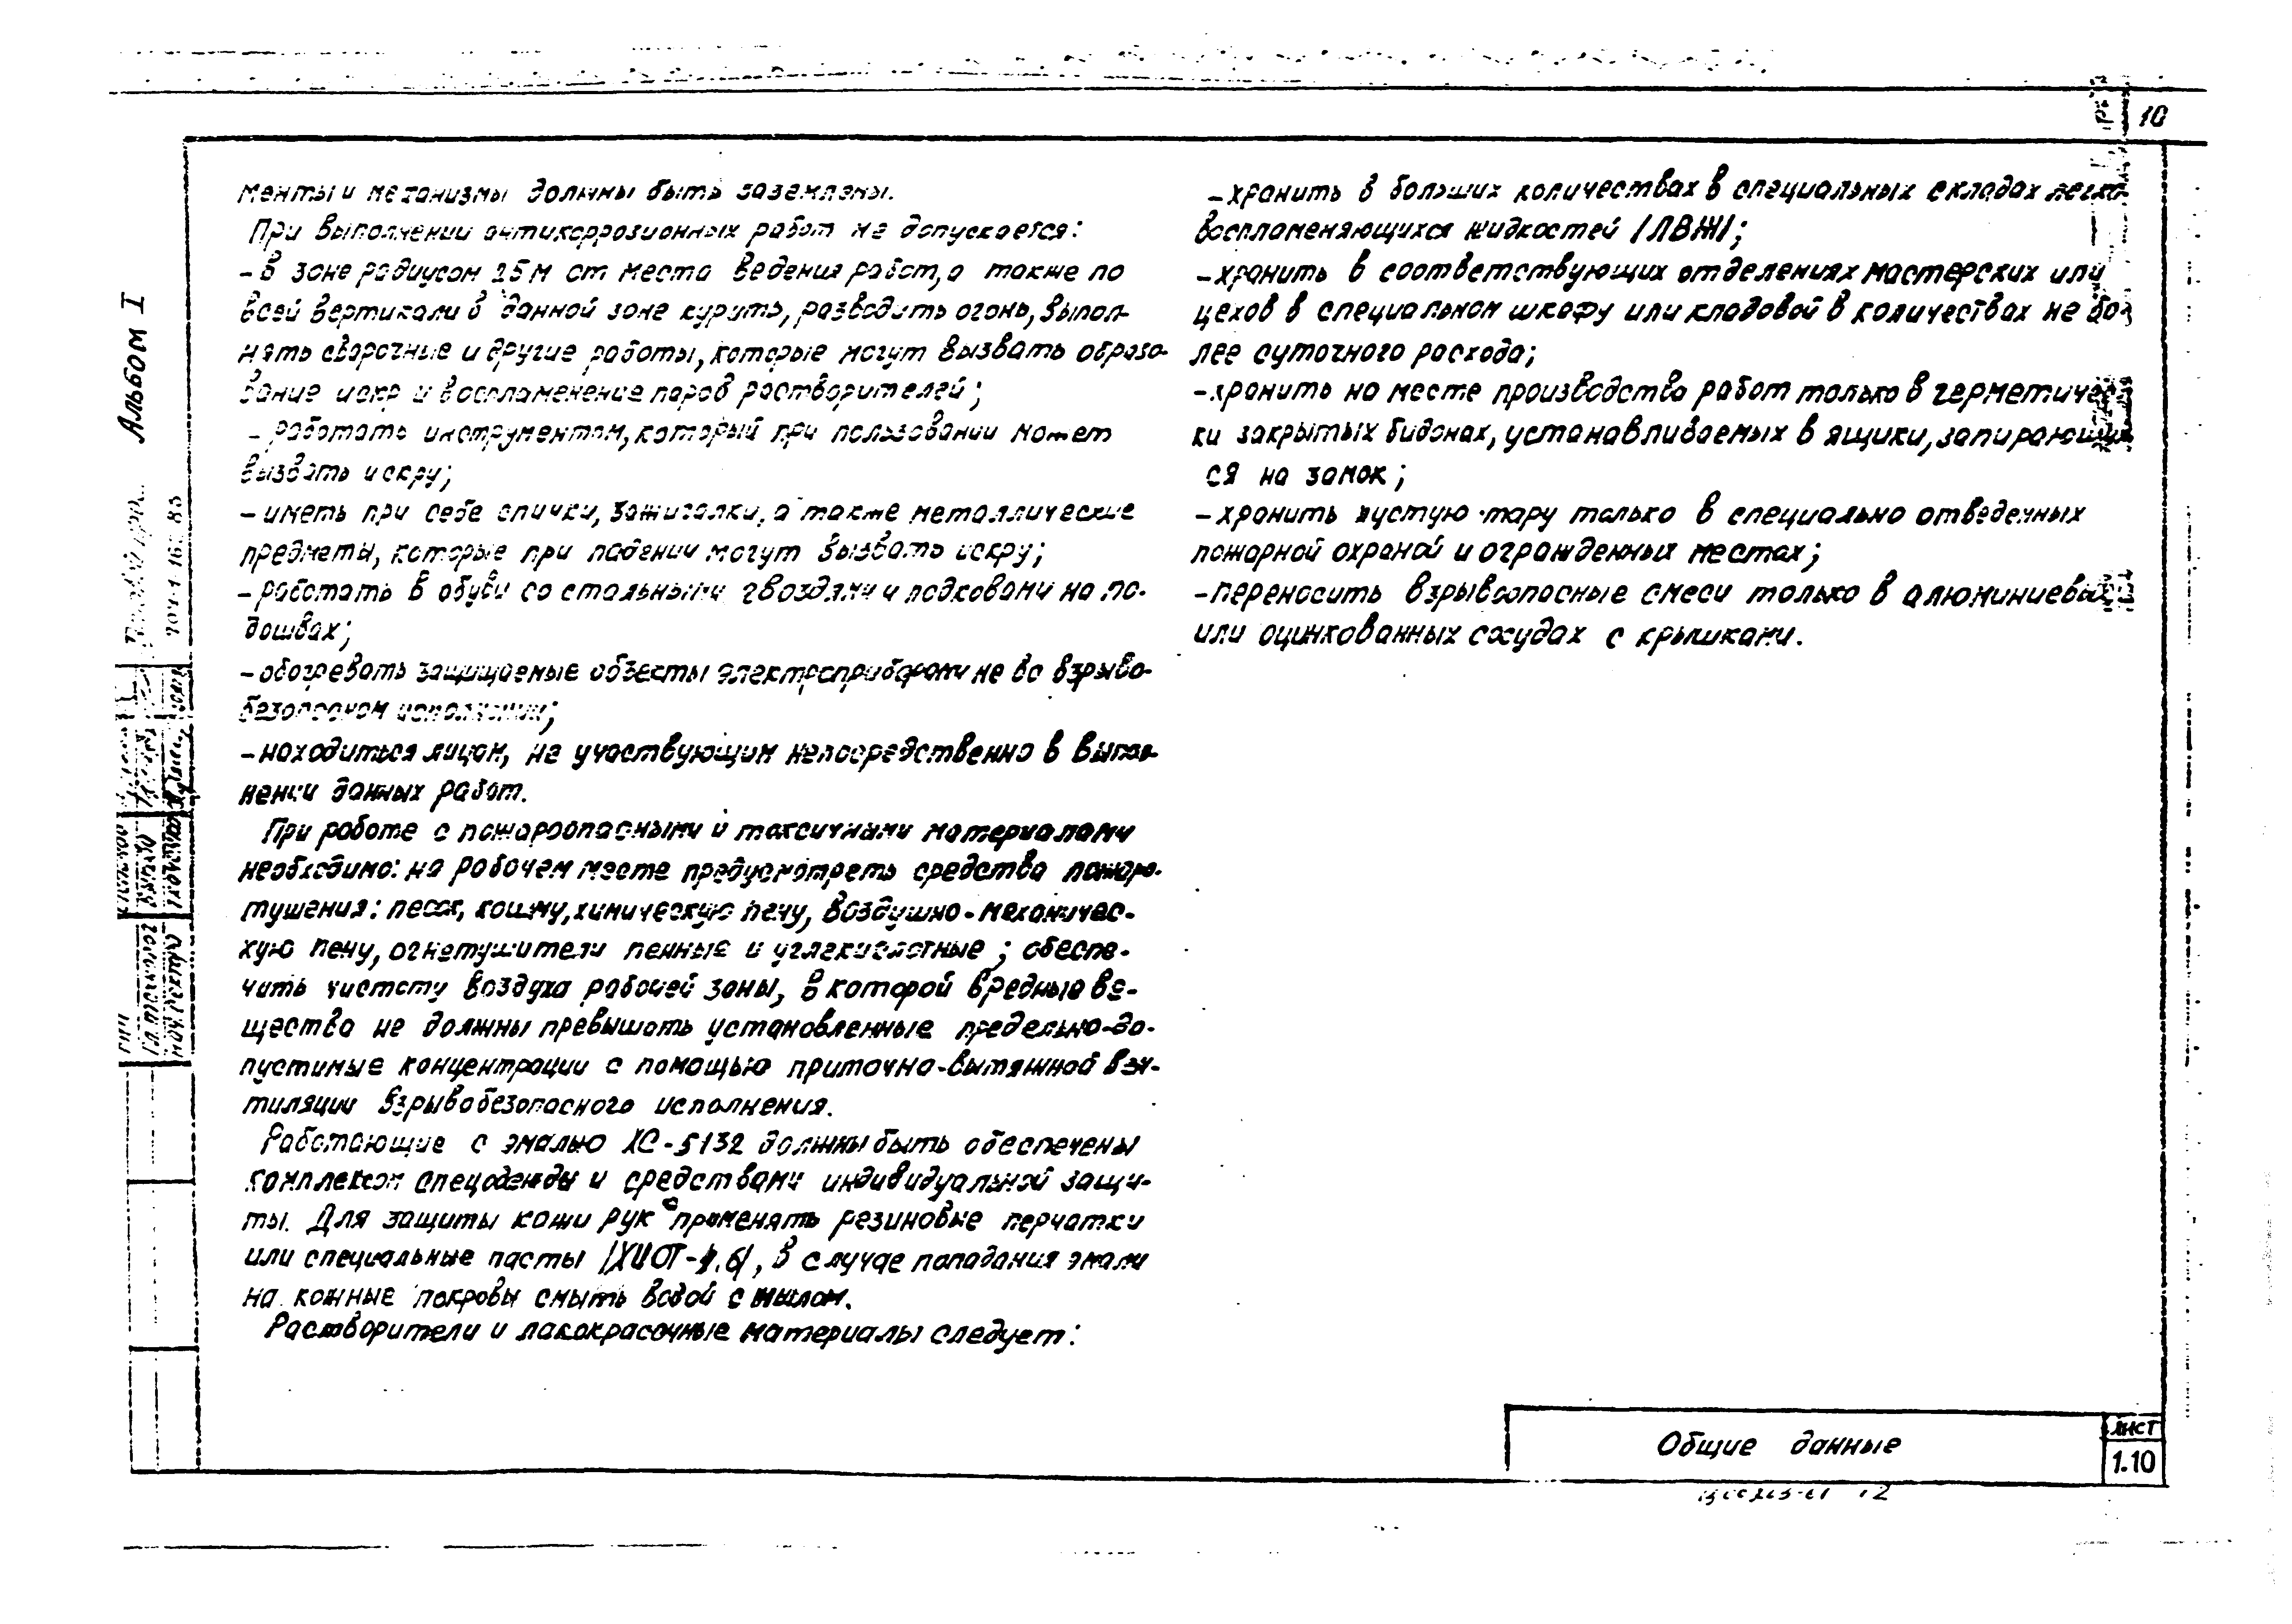 10
Альбом I
менты и механизмы должны быть заземлены.
При выполнении антикоррозионных работ не допускается:
- в зоне радиусом 25м от места ведения работ, а также по
всей вертикали в данной зоне курить, разводить огонь, выпол-
нять сварочные и другие работы, которые могут вызвать образо-
вание искр и воспламенение паров растворителей;
- работать инструментом, который при пользовании может
вызвать искру;
- иметь при себе спички, зажигалки, а также металлические
предметы, которые при падении могут вызвать искру;
- работать в обуви со стальными гвоздями и подковами на по-
дошвах;
- обогревать защищаемые объекты электроприборами не во взрыво-
безопасном исполнении;
- находиться лицам, не участвующим непосредственно в выпол-
нении данных работ.
При работе с пожароопасными и токсичными материалами
необходимо: на рабочем месте предусмотреть средства пожаро-
тушения: песок, кошму, химическую пену, воздушно-механичес-
кую пену, огнетушители пенные и углекислотные; обеспе-
чить чистоту воздуха рабочей зоны, в которой вредные ве-
щества не должны превышать установленные предельно-до-
пустимые концентрации с помощью приточно-вытяжной вен-
тиляции взрывобезопасного исполнения.
Работающие с эмалью ХС-5132 должны быть обеспечены
комплексом спецодежды и средствами индивидуальной защи-
ты. Для защиты кожи рук применять резиновые перчатки
или специальные пасты /ХИОТ-6/, в случае попадания эмали
на кожные покровы смыть водой с мылом.
Растворители и лакокрасочные материалы следует:
- хранить в больших количествах в специальных складах легко-
воспламеняющихся жидкостей /ЛВЖ/;
- хранить в соответствующих отделениях мастерских или
цехов в специальном шкафу или кладовой в количествах не бо-
лее суточного расхода;
- хранить на месте производства работ только в герметичес-
ки закрытых бидонах, устанавливаемых в ящики, запирающие
ся на замок;
- хранить пустую тару только в специально отведенных
пожарной охраной и огражденных местах;
- переносить взрывоопасные смеси только в алюминиевых
или оцинкованных сосудах с крышками.
Общие данные
лист
1.10